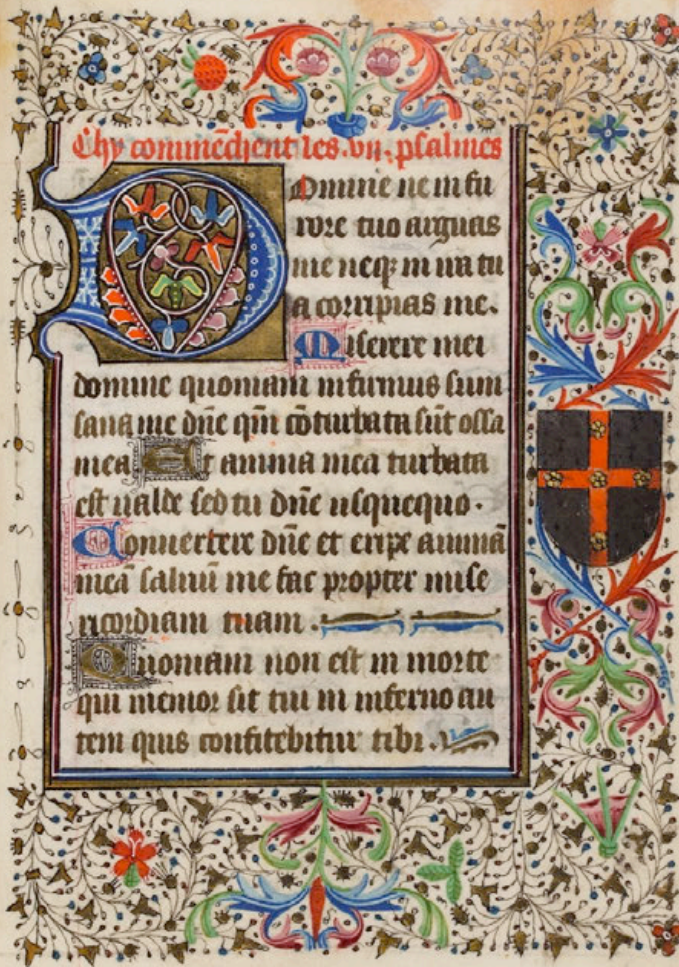 Chy commēchent les .vii. psalmes
Domine ne in fu
rore tuo arguas
me neqꝫ in ira tu
a corripias me.
Miserere mei
domine quoniam infirmus sum
sana me dn̄e qm̄ cōturbata sūt ossa
mea Et anima mea turbata
est ualde sed tu dn̄e usquequo.
Conuertere dn̄e et eripe animā
meā saluū me fac propter mise
ricordiam tuam.
Quoniam non est in morte
qui memor sit tui in inferno au
tem quis confitebitur tibi.